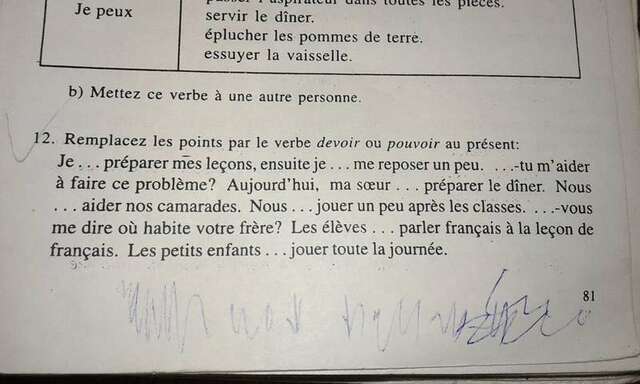 passer l'aspirateur dans toutes les pièces.
Je peux
servir le dîner.
éplucher les pommes de terre.
essuyer la vaisselle.
b) Mettez ce verbe à une autre personne.
12. Remplacez les points par le verbe devoir ou pouvoir au présent:
Je ... préparer mes leçons, ensuite je ... me reposer un peu. ...-tu m'aider
à faire ce problème? Aujourd'hui, ma sœur ... préparer le dîner. Nous
... aider nos camarades. Nous ... jouer un peu après les classes. ...-vous
me dire où habite votre frère? Les élèves ... parler français à la leçon de
français. Les petits enfants ... jouer toute la journée.
81